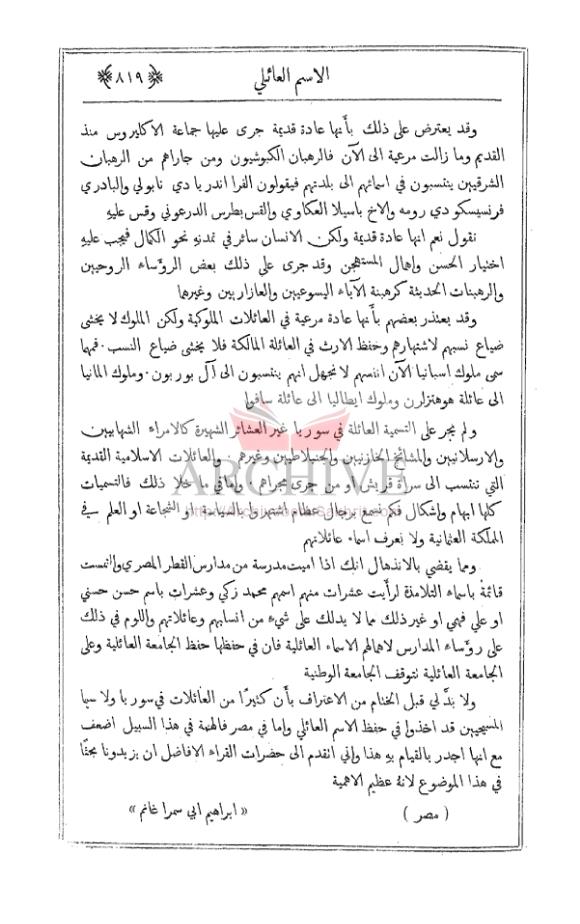 الاسم العائلي
﴿٨١٩﴾
وقد يعترض على ذلك بأنها عادة قديمة جرى عليها جماعة الاكليروس منذ
القديم وما زالت مرعية الى الآن فالرهبان الكبوشيون ومن جاراهم من الرهبان
الشرقيين ينتسبون في اسمائهم الى بلدتهم فيقولون الفرا اندريا دي نابولي والبادري
فرنسيسكو دي رومه والاخ باسيلا العكاوي والقس بطرس الدرعوني وقس عليهِ
نقول نعم انها عادة قديمة ولكن الانسان سائر في تمدنه نحو الكمال فيجب عليهِ
اختيار الحسن واهمال المستهجن وقد جرى على ذلك بعض الرؤساء الروحيين
والرهبنات الحديثة كرهبنة الآباء اليسوعيين والعازاريين وغيرهما
وقد يعتذر بعضهم بأنها عادة مرعية في العائلات الملوكية ولكن الملوك لا يخشى
ضياع نسبهم لاشتهارهم وحفظ الارث في العائلة المالكة فلا يخشى ضياع النسب . فمهما
سمى ملوك اسبانيا الآن انفسهم لا نجهل انهم ينتسبون الى آل بوربون . وملوك المانيا
الى عائلة هوهنزلرن وملوك ايطاليا الى عائلة سافوا
ولم يجر على التسمية العائلة في سوريا غير العشائر الشهيرة كالامراء الشهابيين
والارسلانيين والمشائخ الخازنيين والجنبلاطيين وغيرهم . والعائلات الاسلامية القديمة
التي تنتسب الى سراة قريش او من جرى مجراهم . واما في ما خلا ذلك فالتسميات
كلها ابهام واشكال فكم نسمع برجال عظام اشتهروا بالسياسة او الشجاعة او العلم في
المملكة العثمانية ولا نعرف اسماء عائلاتهم
ومما يقضي بالانذهال انك اذا اميت مدرسة من مدارس القطر المصري والتمست
قائمة باسماء التلامذة لرأيت عشرات منهم اسمهم محمد زكي وعشرات باسم حسن حسني
او علي فهمي او غير ذلك مما لا يدلك على شيء من انسابهم وعائلاتهم واللوم في ذلك
على رؤساء المدارس لاهمالهم الاسماء العائلية فان في حفظها حفظ الجامعة العائلية وعلى
الجامعة العائلية نتوقف الجامعة الوطنية
ولا بدَّ لي قبل الختام من الاعتراف بأن كثيرًا من العائلات في سوريا ولا سيما
المسيحيين قد اخذوا في حفظ الاسم العائلي واما في مصر فالهمة في هذا السبيل اضعف
مع انها اجدر بالقيام بهِ هذا واني انقدم الى حضرات القراء الافاضل ان يزيدونا بحثًا
في هذا الموضوع لانهُ عظيم الاهمية
( مصر ) « ابراهيم ابي سمرا غانم »
ARCHIVE